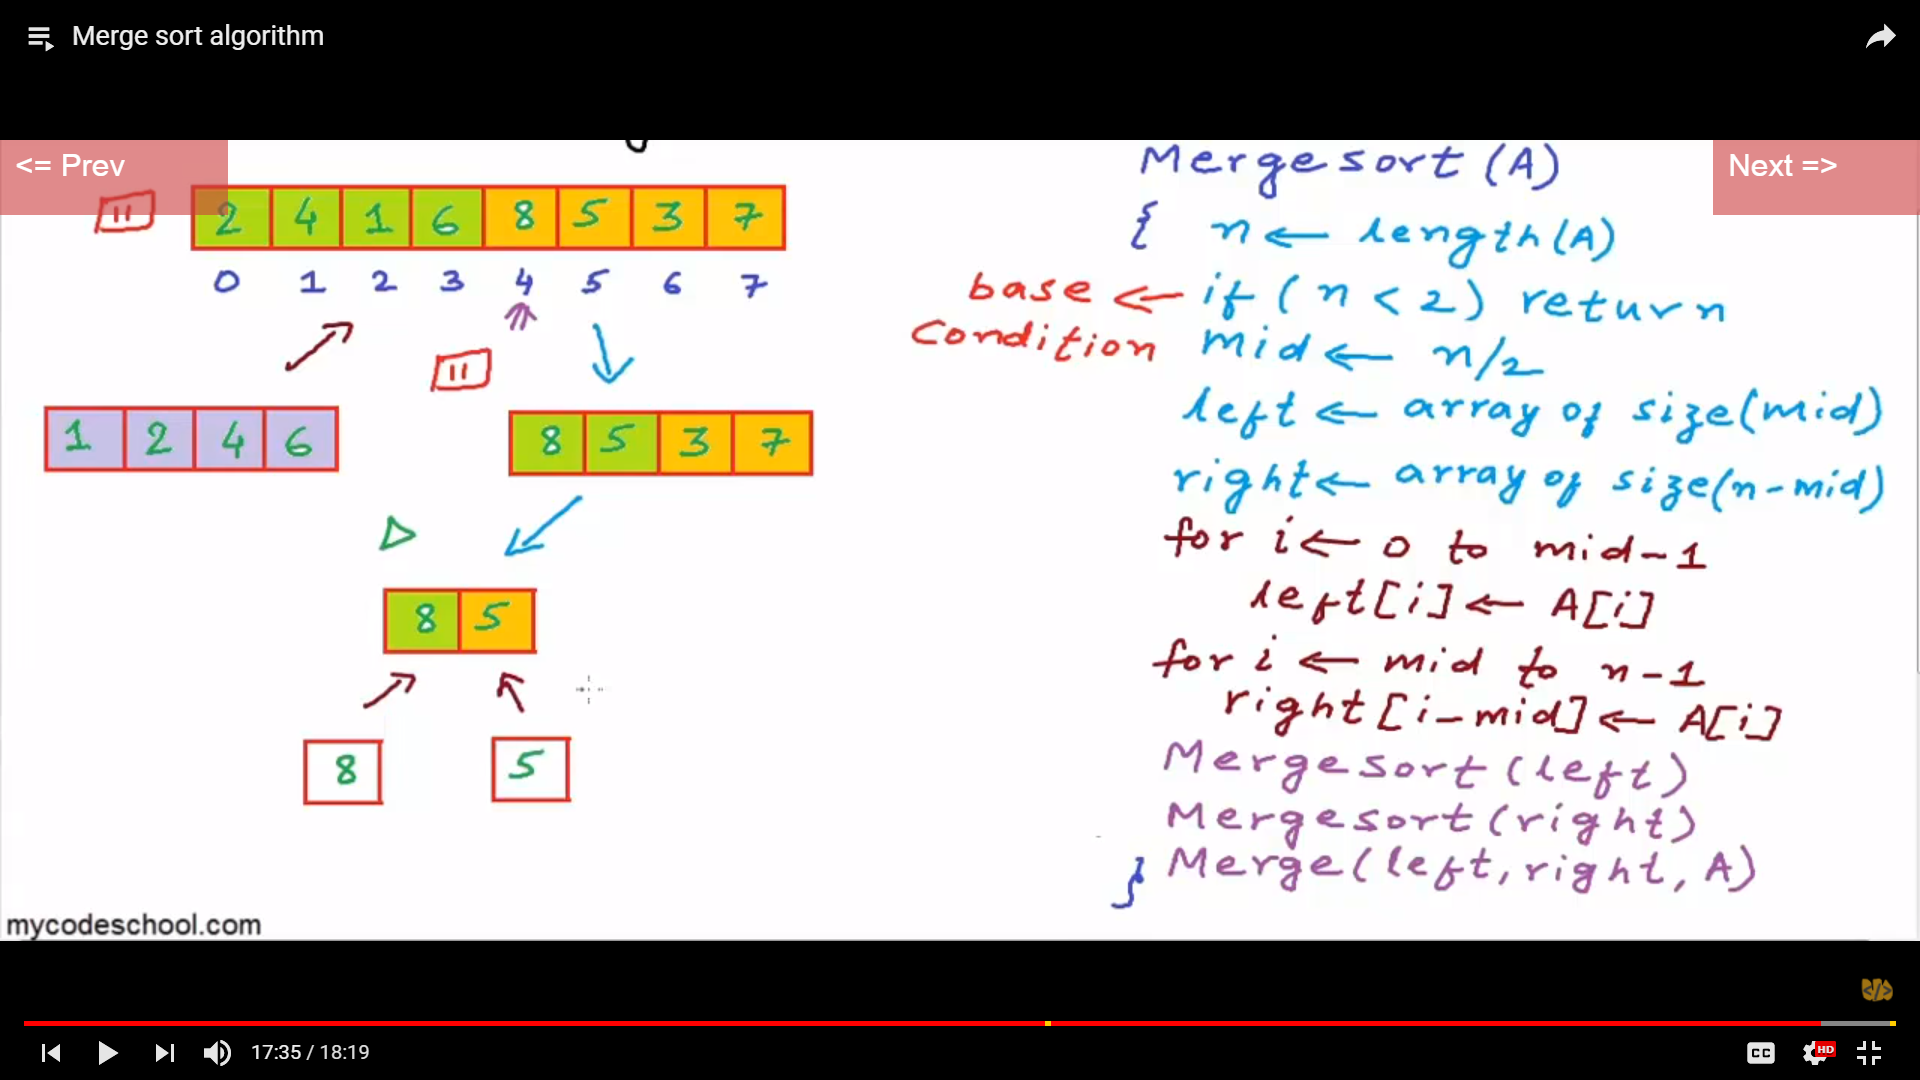 Merge sort algorithm
<= Prev
Next =>
2 4 1 6 8 5 3 7
0 1 2 3 4 5 6 7
1 2 4 6
8 5 3 7
8 5
8
5
Mergesort (A)
{ n ← length(A)
base ← if ( n < 2 ) return
condition
mid ← n/2
left ← array of size(mid)
right ← array of size(n-mid)
for i ← 0 to mid-1
left[i] ← A[i]
for i ← mid to n-1
right[i-mid] ← A[i]
Mergesort (left)
Mergesort (right)
} Merge(left, right, A)
mycodeschool.com
17:35 / 18:19
CC
HD